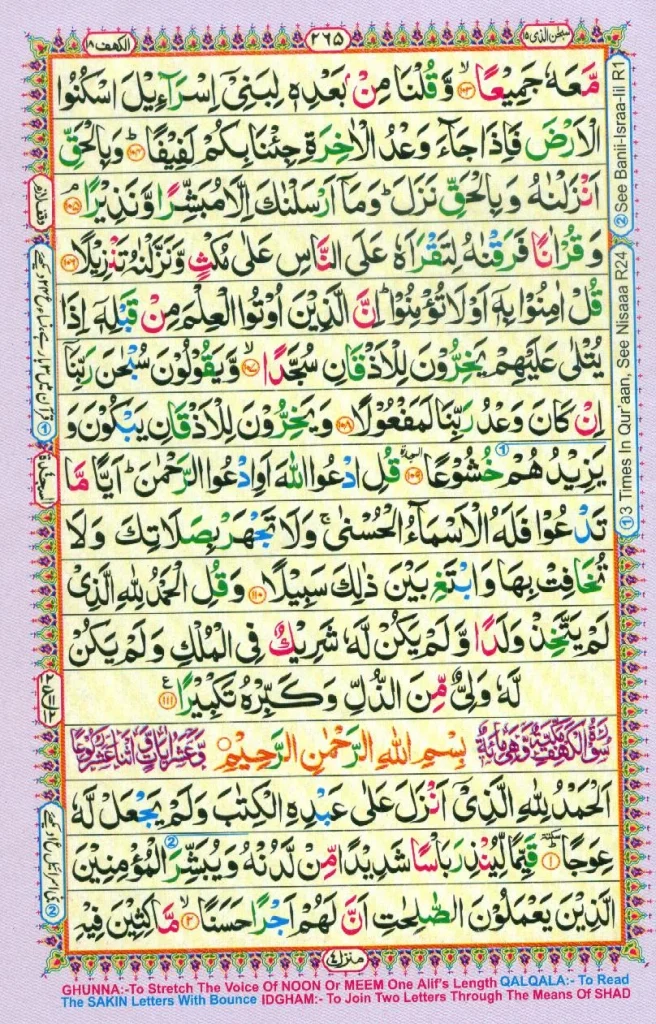 سبحن الذى ١٥
٢٦٥
الكهف ١٨
مَّعَهٗ جَمِيْعًا ۙ‏﴿۱۰۳﴾ وَّقُلْنَا مِنْۢ بَعْدِهٖ لِبَنِىْۤ اِسْرَآءِيْلَ اسْكُنُوا
الْاَرْضَ فَاِذَا جَآءَ وَعْدُ الْاٰخِرَةِ جِئْنَا بِكُمْ لَفِيْفًا ؕ‏﴿۱۰۴﴾ وَبِالْحَقِّ
اَنْزَلْنٰهُ وَبِالْحَقِّ نَزَلَ ؕ وَمَاۤ اَرْسَلْنٰكَ اِلَّا مُبَشِّرًا وَّنَذِيْرًا ۘ‏﴿۱۰۵﴾
وَقُرْاٰنًا فَرَقْنٰهُ لِتَقْرَاَهٗ عَلَى النَّاسِ عَلٰى مُكْثٍ وَّنَزَّلْنٰهُ تَنْزِيْلًا‏ ﴿۱۰۶﴾
قُلْ اٰمِنُوْا بِهٖۤ اَوْ لَا تُؤْمِنُوْا ؕ اِنَّ الَّذِيْنَ اُوْتُوا الْعِلْمَ مِنْ قَبْلِهٖۤ اِذَا
يُتْلٰى عَلَيْهِمْ يَخِرُّوْنَ لِلْاَذْقَانِ سُجَّدًا ۙ‏﴿۱۰۷﴾ وَّيَقُوْلُوْنَ سُبْحٰنَ رَبِّنَاۤ
اِنْ كَانَ وَعْدُ رَبِّنَا لَمَفْعُوْلًا‏ ﴿۱۰۸﴾ وَيَخِرُّوْنَ لِلْاَذْقَانِ يَبْكُوْنَ وَ
يَزِيْدُهُمْ خُشُوْعًا ۩‏﴿۱۰۹﴾ قُلِ ادْعُوا اللّٰهَ اَوِ ادْعُوا الرَّحْمٰنَ ؕ اَيًّا مَّا
تَدْعُوْا فَلَهُ الْاَسْمَآءُ الْحُسْنٰى ۚ وَلَا تَجْهَرْ بِصَلَاتِكَ وَلَا
تُخَافِتْ بِهَا وَابْتَغِ بَيْنَ ذٰلِكَ سَبِيْلًا‏ ﴿۱۱۰﴾ وَقُلِ الْحَمْدُ لِلّٰهِ الَّذِىْ
لَمْ يَتَّخِذْ وَلَدًا وَّلَمْ يَكُنْ لَّهٗ شَرِيْكٌ فِى الْمُلْكِ وَلَمْ يَكُنْ
لَّهٗ وَلِىٌّ مِّنَ الذُّلِّ وَكَبِّرْهُ تَكْبِيْرًا‏ ﴿۱۱۱﴾
سُوْرَةُ الْكَهْفِ مَكِّيَّةٌ وَّهِىَ مِائَةٌ بِسْمِ اللّٰهِ الرَّحْمٰنِ الرَّحِيْمِ وَّعَشْرُ اٰيَاتٍ وَّاثْنَا عَشَرَ رُكُوْعًا
اَلْحَمْدُ لِلّٰهِ الَّذِىْۤ اَنْزَلَ عَلٰى عَبْدِهِ الْكِتٰبَ وَلَمْ يَجْعَلْ لَّهٗ
عِوَجًا ؕ‏﴿۱﴾ قَيِّمًا لِّيُنْذِرَ بَاْسًا شَدِيْدًا مِّنْ لَّدُنْهُ وَيُبَشِّرَ الْمُؤْمِنِيْنَ
الَّذِيْنَ يَعْمَلُوْنَ الصّٰلِحٰتِ اَنَّ لَهُمْ اَجْرًا حَسَنًا ۙ‏﴿۲﴾ مَّاكِثِيْنَ فِيْهِ
② See Banii-Israa-iil R1
① 3 Times In Qur'aan, See Nisaaa R24
وقف لازم
السجدة
منزل ٤
GHUNNA:-To Stretch The Voice Of NOON Or MEEM One Alif's Length QALQALA:- To Read
The SAKIN Letters With Bounce IDGHAM:- To Join Two Letters Through The Means Of SHAD